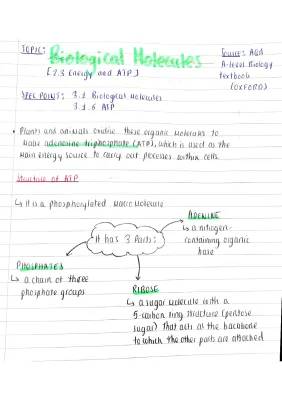 TOPIC: Biological Molecules
[2.3 Energy and ATP]
Source: AQA
A-level Biology
textbook
(OXFORD)
SPEC POINT: 3.1 Biological Molecules
3.1.6 ATP
• Plants and animals oxidise these organic molecules to
make adenosine triphosphate (ATP), which is used as the
main energy source to carry out processes within cells.
Structure of ATP
↳ it is a phosphorylated macromolecule
It has 3 Parts:
ADENINE
↳ a nitrogen-
containing organic
base
PHOSPHATES
↳ a chain of three
phosphate groups
RIBOSE
↳ a sugar molecule with a
5-carbon ring structure (pentose
sugar) that acts as the backbone
to which the other parts are attached